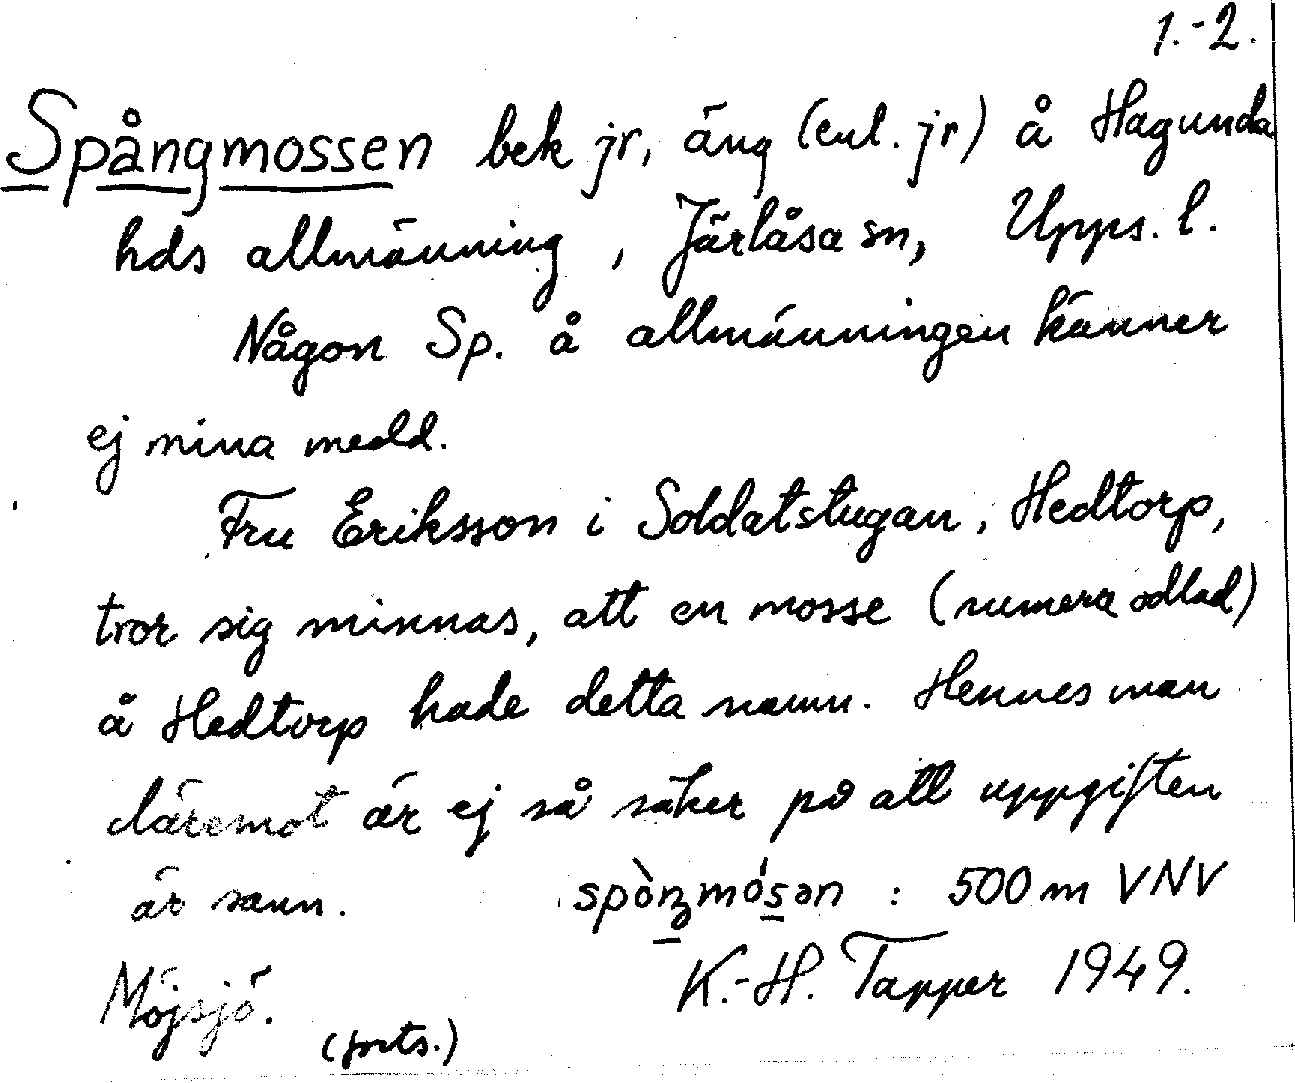 1.-2.
Spångmossen bek jr, äng (enl. jr) å Hagunda
hds allmänning, Järlåsa sn, Upps. l.
Någon Sp. å allmänningen känner
ej mina medd.
Fru Eriksson i Soldatstugan, Hedtorp,
tror sig minnas, att en mosse (numera odlad)
å Hedtorp hade detta namn. Hennes man
däremot är ej så säker på att uppgiften
är sann. : 500 m VNV
Möjsjö. K.-H. Tapper 1949.
(forts.)